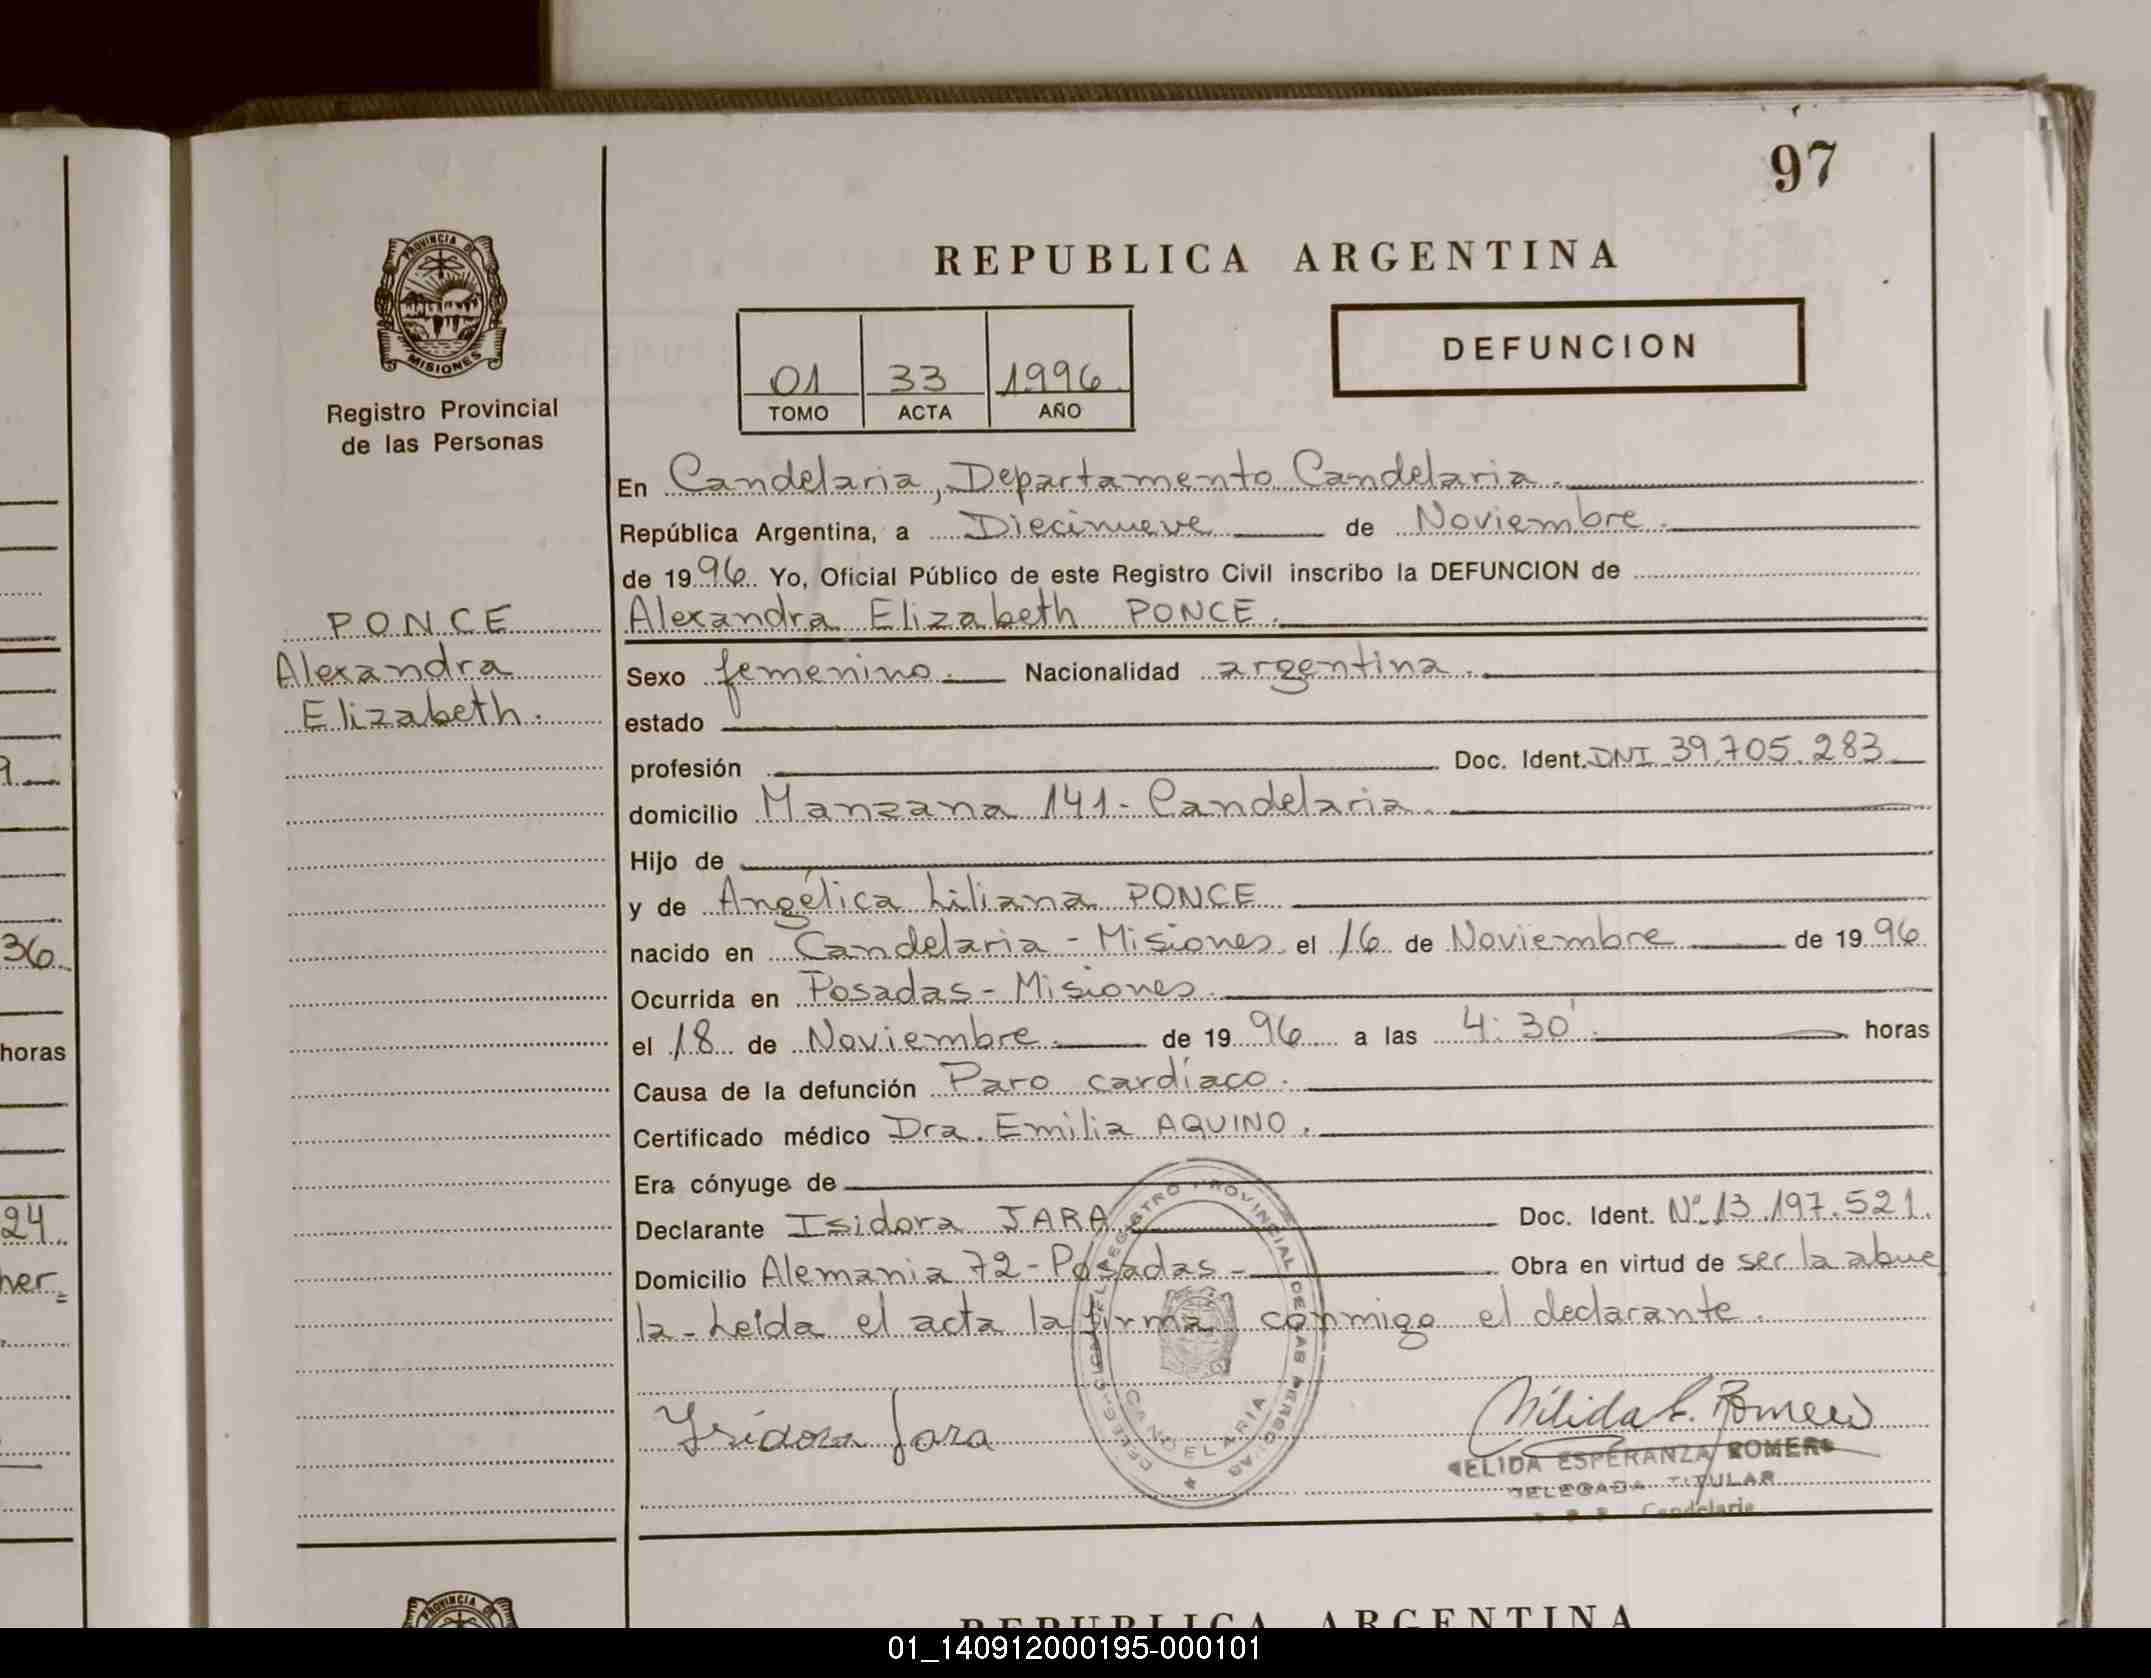 97
PROVINCIA DE
MISIONES
Registro Provincial
de las Personas
REPUBLICA ARGENTINA
DEFUNCION
01 33 1996
TOMO ACTA AÑO
En Candelaria, Departamento Candelaria.
República Argentina, a Diecinueve de Noviembre.
de 1996 Yo, Oficial Público de este Registro Civil inscribo la DEFUNCION de
PONCE
Alexandra
Elizabeth.
Alexandra Elizabeth PONCE.
Sexo femenino. Nacionalidad argentina.
estado
profesión Doc. Ident. DNI 39.705.283
domicilio Manzana 141 - Candelaria.
Hijo de
y de Angélica Liliana PONCE
nacido en Candelaria - Misiones el 16 de Noviembre de 1996
Ocurrida en Posadas - Misiones.
el 18 de Noviembre. de 1996 a las 4:30'. horas
Causa de la defunción Paro cardíaco.
Certificado médico Dra. Emilia AQUINO.
Era cónyuge de
Declarante Isidora JARA Doc. Ident. Nº 13.197.521.
Domicilio Alemania 72 - Posadas - Obra en virtud de ser la abue
la - Leída el acta la firma conmigo el declarante.
REGISTRO PROVINCIAL DE LAS PERSONAS
CANDELARIA
Isidora Jara
Nélida E. Romero
NELIDA ESPERANZA ROMERO
DELEGADA TITULAR
Candelaria
9
36
horas
24
her
PROVINCIA DE
REPUBLICA ARGENTINA
01_140912000195-000101